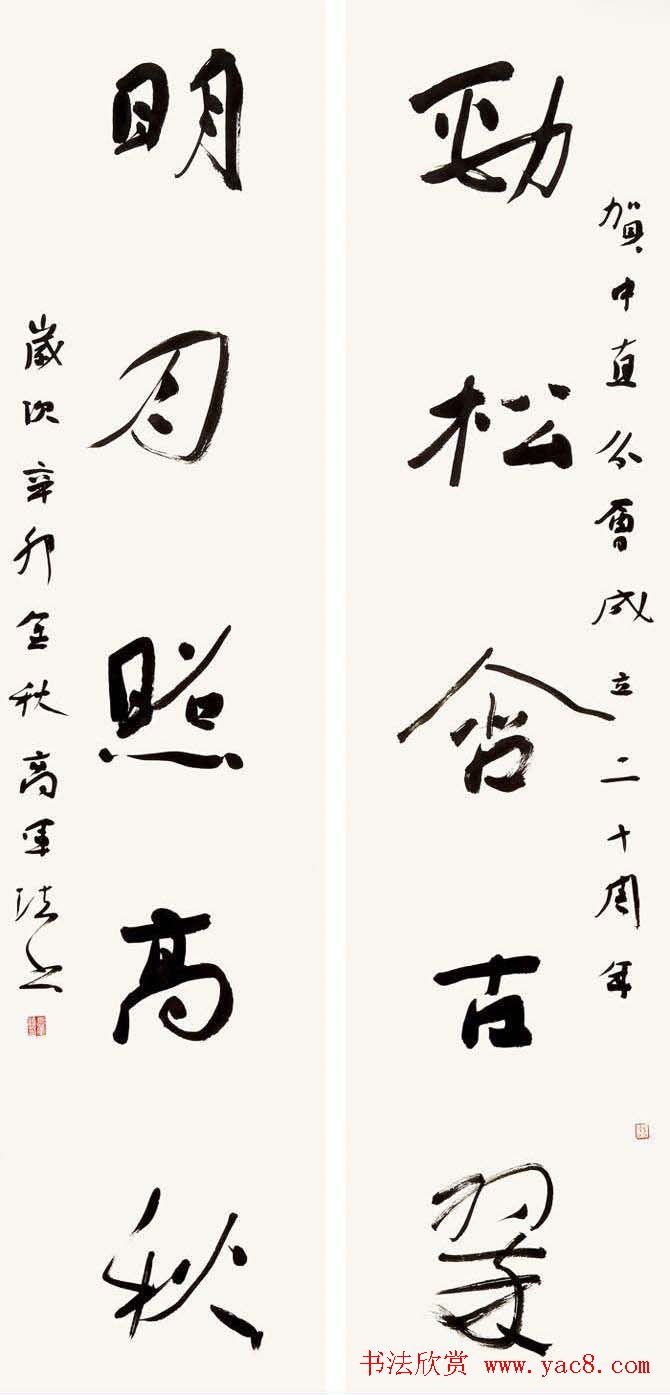 賀中直分會成立二十周年
勁松含古翠
明月照高秋
歲次辛卯金秋高军法书
书法欣赏 www.yac8.com